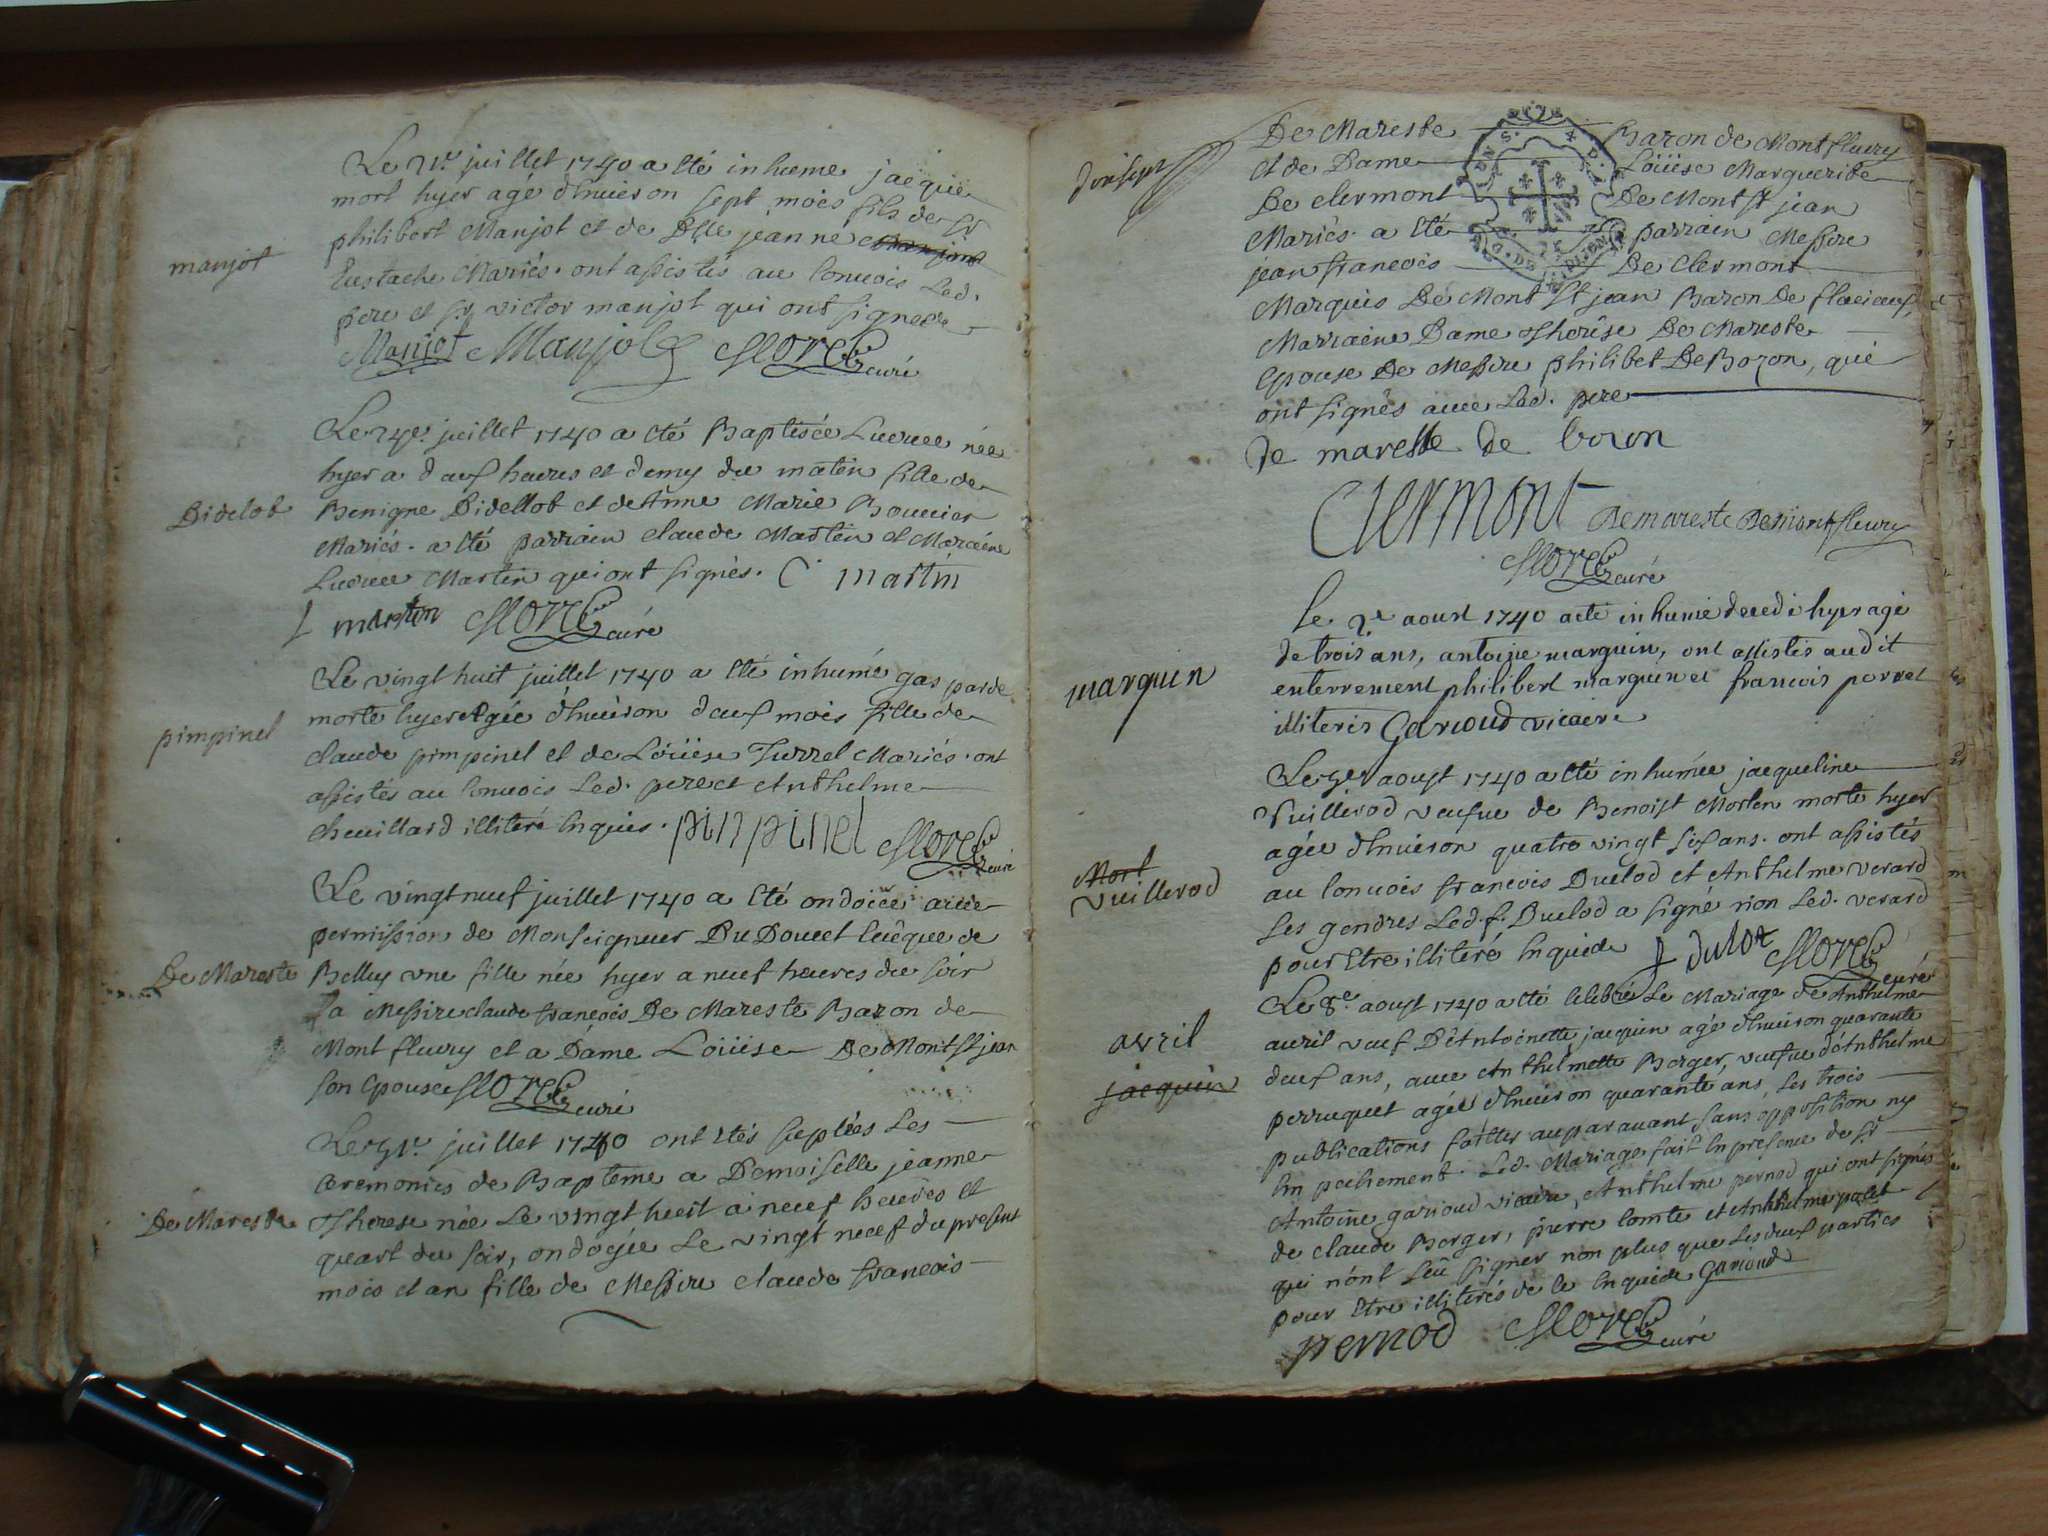 manjot
Le 21e juillet 1740 a eté inhumé jacque
mort hyer agé d'enuiron sept mois fils de Sr
philibert Manjot et de Dlle jeanne manjot
Eustache Mariés. ont assistés au conuois Led.
pere et Sr victor manjot qui ont signes
Manjot Manjot curé
Le juillet 1740 a eté Baptisée née
hyer a deux heures et demy du matin fille de
Bidelot
Benigne Bidellot et de Anne Marie Bouuier
Mariés. a eté parrain claude Martin et Maraine
Martin qui ont signés. C martin
L martin curé
Le vingt huit juillet 1740 a eté inhumé gasparde
morte hyer agée d'enuiron deux mois fille de
pimpinel
claude pimpinel et de Loüise Turrel Mariés. ont
assistés au conuois Led. pere et Anthelme
cheuillard illiteré Enquis. pinpinel curé
Le vingt neuf juillet 1740 a eté ondoiée auec
permission de Monseigneur Du Doucet Euêque de
De Mareste
Belley une fille née hyer a neuf heures du soir
a Messire claude françois De Mareste Baron de
Montfleury et a Dame Loüise De Mont St jean
son Epouse curé
Le 31e juillet 1740 ont étés suplées Les
ceremonies de Bapteme a Demoiselle jeanne
De Mareste
Therese née Le vingt huit a neuf heures et
quart du soir, ondoyée Le vingt neuf du present
mois et an fille de Messire claude francois
De Mareste Baron de Montfleury
et de Dame Loüise Marguerite
De clermont De Mont St jean
Mariés. a eté parrain Messire
jean francois De Clermont
Marquis De Mont St jean Baron De flacieux,
Marraine Dame Therêse De Mareste
Epouse De Messire philibet De Bozon, qui
ont signés auec Led. pere
De mareste de bozon
Clermont Demareste Demontfleury
curé
Le 2e aoust 1740 a eté inhumé decedé hyer agé
de trois ans, antoine marquin, ont assistés audit
marquin
enterrement philibert marquin et francois perret
illiterés Garioud vicaire
Le aoust 1740 a eté inhumée jacqueline
Vuillerod veufue de Benoist Morten morte hyer
agée d'enuiron quatre vingt six ans. ont assistés
Mort
Vuillerod
au conuois francois Duclod et Anthelme verard
Les gendres Led. f. Duclod a signé non Led. verard
pour Etre illiteré Enquide f dulot curé
Le 8e aoust 1740 a eté celebré Le Mariage de Anthelme
avril
auril veuf D'Antoinette jacquin agé d'enuiron quarante
jacquin
deux ans, auec Anthelmette Berger, veufue d'Anthelme
perruquet agée d'enuiron quarante ans, Les trois
publications faittes auparauant sans opposition ny
Enpechement. Led. Mariage fait En presence de Sr
Antoine garioud vicaire, Anthelme pernod qui ont signés
de claude Berger, pierre comte et Anthelme
qui n'ont seû signer non plus que Les deux parties
pour Etre illiterés de ce Enquide Garioud
pernod curé